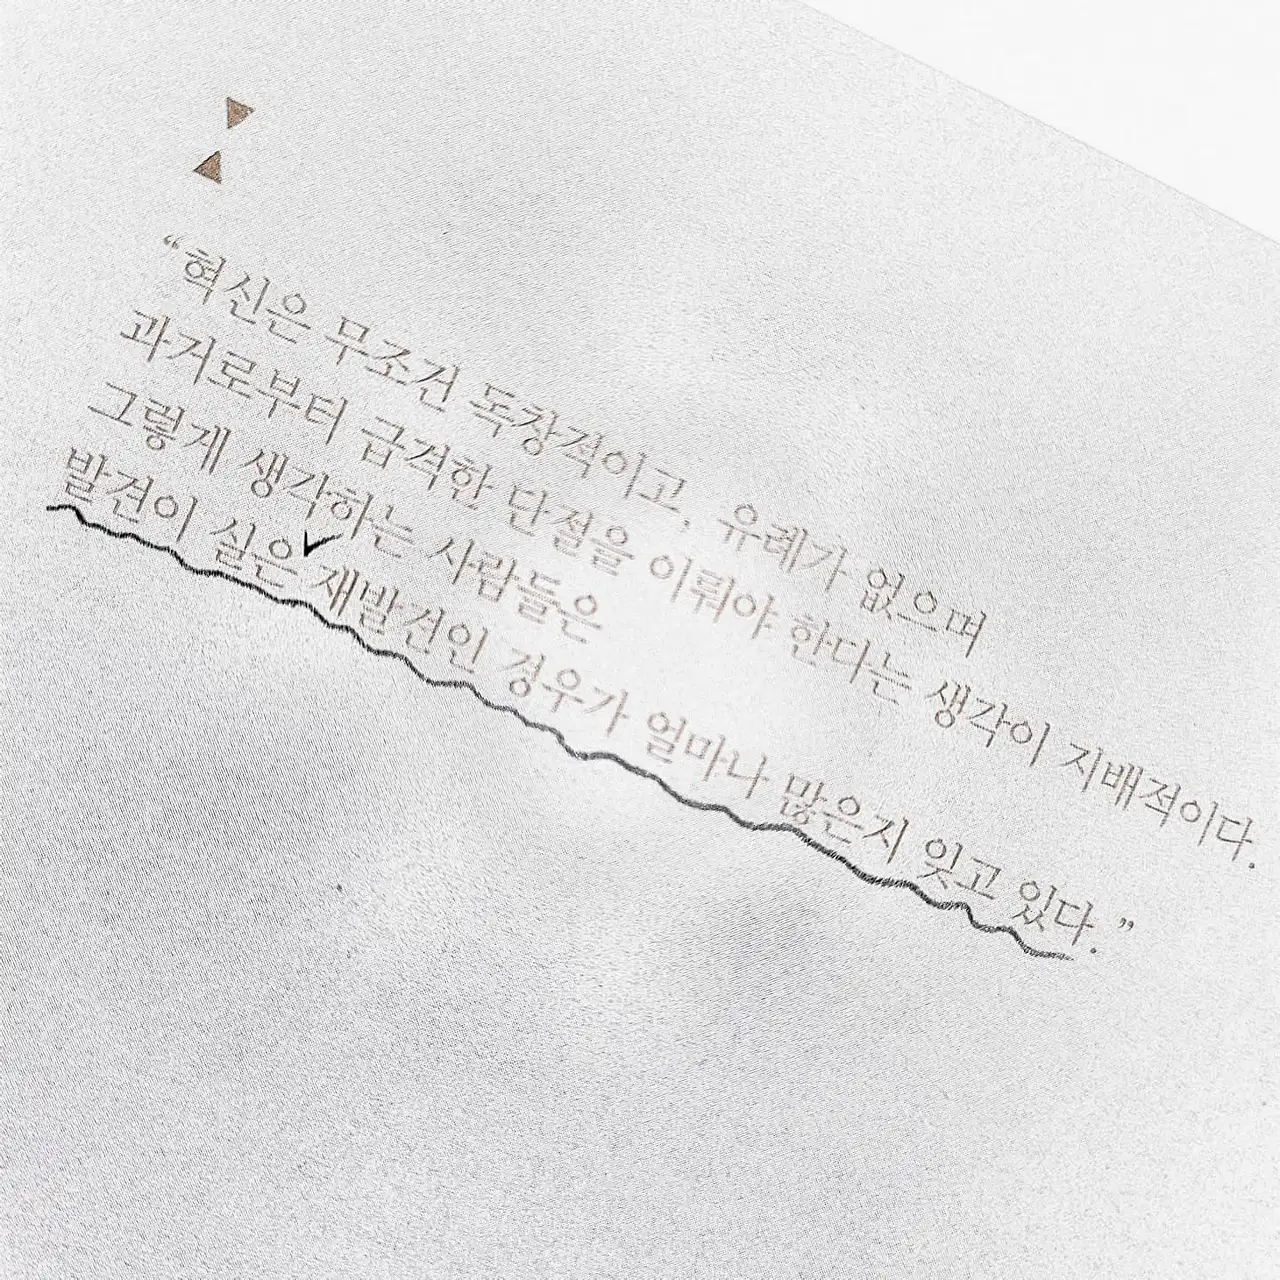 “혁신은 무조건 독창적이고, 유례가 없으며
과거로부터 급격한 단절을 이뤄야 한다는 생각이 지배적이다.
그렇게 생각하는 사람들은
발견이 실은 재발견인 경우가 얼마나 많은지 잊고 있다.”